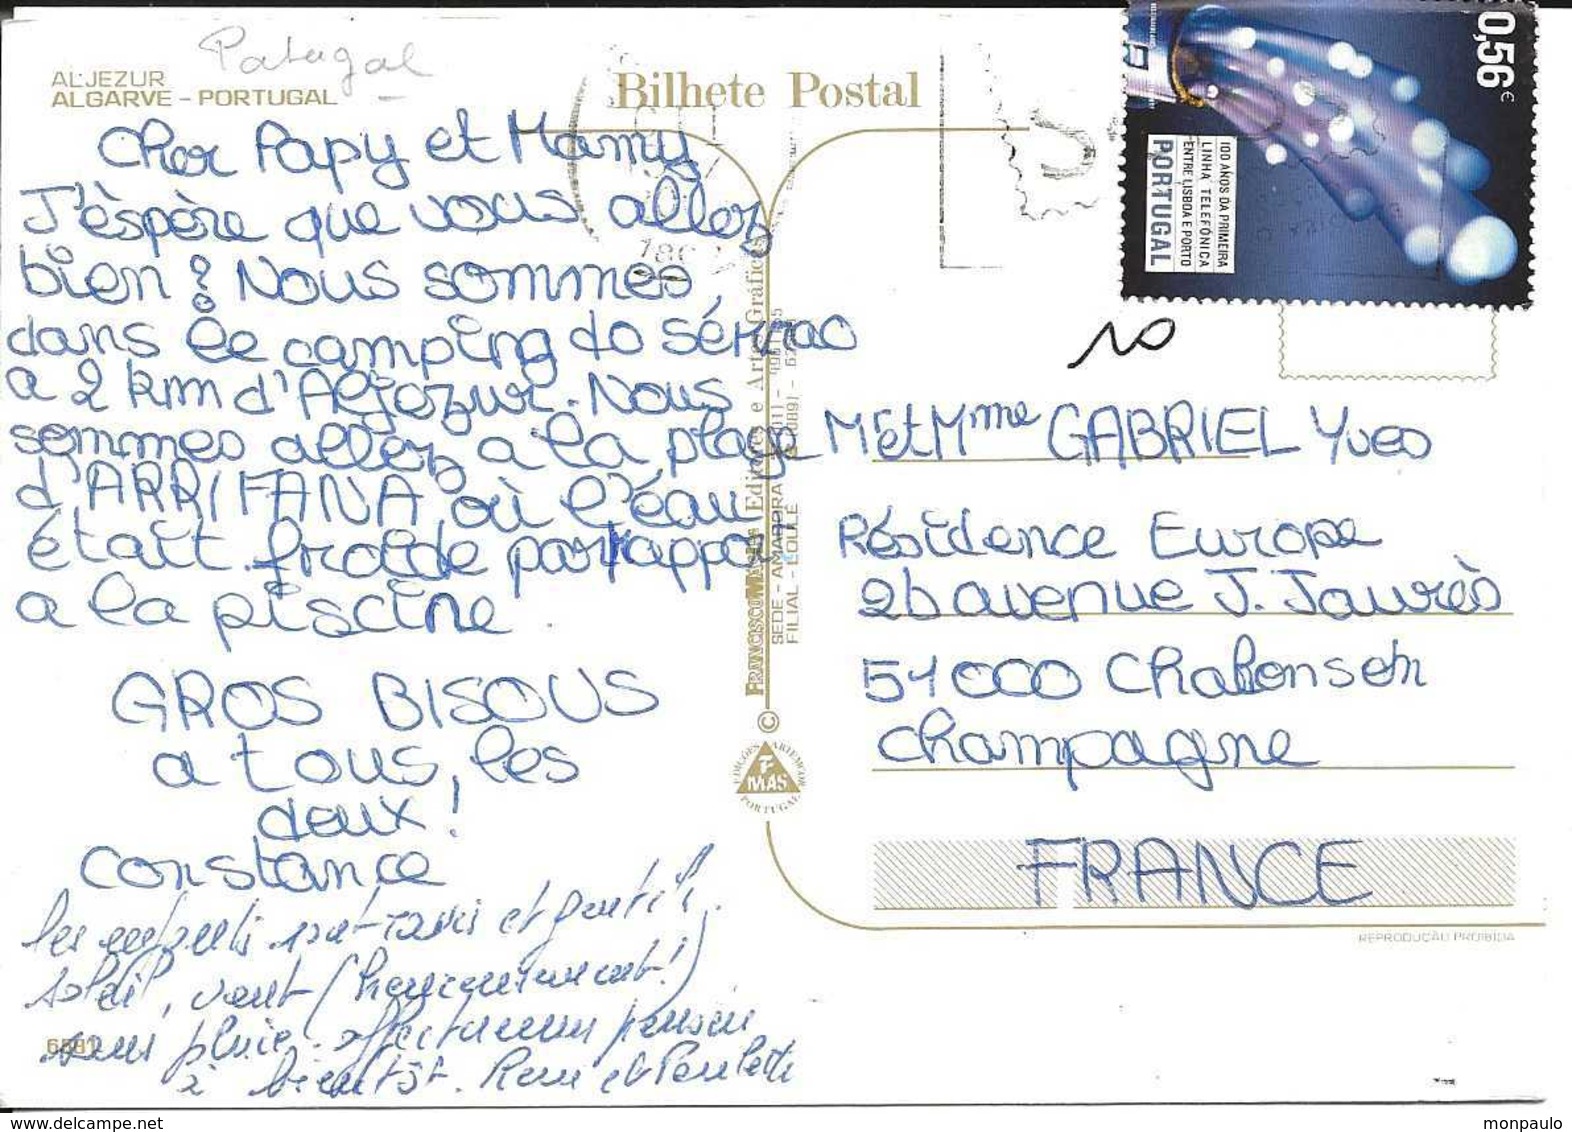 Portugal
ALJEZUR
ALGARVE - PORTUGAL
Bilhete Postal
Cher Papy et Mamy
J'éspère que vous allez
bien ? Nous sommes
dans le camping do sérrao
a 2 km d'Aljezur. Nous
sommes allez a la plage
d'ARRIFANA, où l'éau
était froide par rappor
a la piscine.
GROS BISOUS
a tous, les
deux !
Constance
les enfants sont ravis et gentils.
soleil, vent (heureusement!)
sans pluie. affectueuses pensées
à bientôt. René et Paulette
6581
FRANCISCO MAS Editores e Artes Gráficas
SEDE - AMADORA
FILIAL - LOULÉ
©
EDIÇÕES ARTEMCOR
MAS
PORTUGAL
0,56 €
100 ANOS DA PRIMEIRA
LINHA TELEFÓNICA
ENTRE LISBOA E PORTO
PORTUGAL
10
Mr et Mme GABRIEL Yves
Résidence Europe
2b avenue J. Jaurès
51000 Chalonsen
Champagne
FRANCE
REPRODUÇÃO PROIBIDA
monpaulo